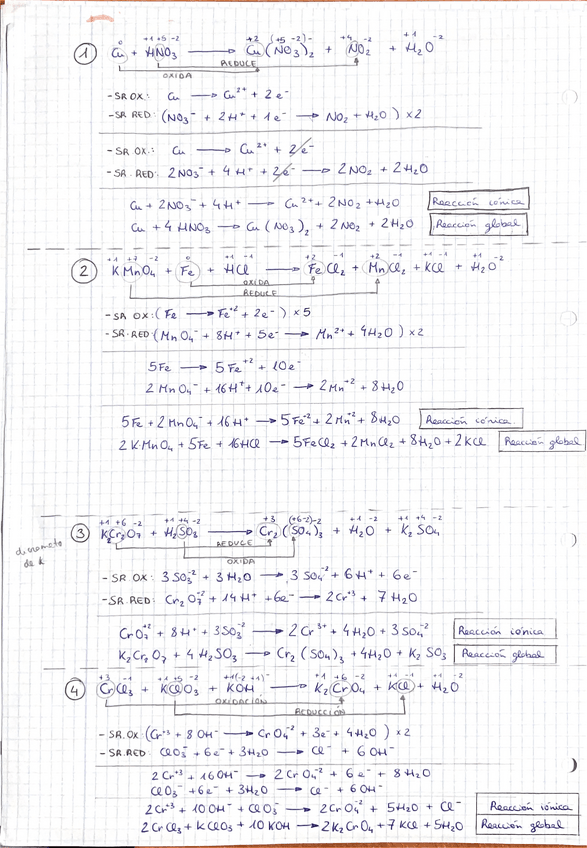 0 +1 +5 -2 +2 (+5 -2)- +4 -2 +1 -2
① Cu + HNO₃ ⟶ Cu(NO₃)₂ + NO₂ + H₂O
REDUCE
OXIDA
- SR OX: Cu ⟶ Cu²⁺ + 2e⁻
- SR RED: (NO₃⁻ + 2H⁺ + 1e⁻ ⟶ NO₂ + H₂O) ×2
- SR OX.: Cu ⟶ Cu²⁺ + 2e⁻
- SR. RED: 2NO₃⁻ + 4H⁺ + 2e⁻ ⟶ 2NO₂ + 2H₂O
Cu + 2NO₃⁻ + 4H⁺ ⟶ Cu²⁺ + 2NO₂ + H₂O Reacción iónica
Cu + 4HNO₃ ⟶ Cu(NO₃)₂ + 2NO₂ + 2H₂O Reacción global
+1 +7 -2 0 +1 -1 +2 -1 +2 -1 +1 -1 +1 -2
② KMnO₄ + Fe + HCl ⟶ FeCl₂ + MnCl₂ + KCl + H₂O
OXIDA
REDUCE
- SR OX: (Fe ⟶ Fe⁺² + 2e⁻) ×5
- SR. RED: (MnO₄⁻ + 8H⁺ + 5e⁻ ⟶ Mn²⁺ + 4H₂O) ×2
5Fe ⟶ 5Fe⁺² + 10e⁻
2MnO₄⁻ + 16H⁺ + 10e⁻ ⟶ 2Mn⁺² + 8H₂O
5Fe + 2MnO₄⁻ + 16H⁺ ⟶ 5Fe⁺² + 2Mn⁺² + 8H₂O Reacción iónica
2KMnO₄ + 5Fe + 16HCl ⟶ 5FeCl₂ + 2MnCl₂ + 8H₂O + 2KCl Reacción global
+1 +6 -2 +1 +4 -2 +3 (+6 -2)-2 +1 -2 +1 +4 -2
③ K₂Cr₂O₇ + H₂SO₃ ⟶ Cr₂(SO₄)₃ + H₂O + K₂SO₄
dicromato
de k
REDUCE
OXIDA
- SR. OX: 3SO₃⁻² + 3H₂O ⟶ 3SO₄⁻² + 6H⁺ + 6e⁻
- SR. RED: Cr₂O₇⁻² + 14H⁺ + 6e⁻ ⟶ 2Cr⁺³ + 7H₂O
CrO₇⁺² + 8H⁺ + 3SO₃⁻² ⟶ 2Cr³⁺ + 4H₂O + 3SO₄⁻² Reacción iónica
K₂Cr₂O₇ + 4H₂SO₃ ⟶ Cr₂(SO₄)₃ + 4H₂O + K₂SO₃ Reacción global
+3 -1 +1 +5 -2 +1(-2 +1)⁻ +1 +6 -2 +1 -1 +1 -2
④ CrCl₃ + KClO₃ + KOH ⟶ K₂CrO₄ + KCl + H₂O
OXIDACIÓN
REDUCCIÓN
- SR. OX: (Cr⁺³ + 8OH⁻ ⟶ CrO₄⁻² + 3e⁻ + 4H₂O) ×2
- SR. RED: ClO₃⁻ + 6e⁻ + 3H₂O ⟶ Cl⁻ + 6OH⁻
2Cr⁺³ + 16OH⁻ ⟶ 2CrO₄⁻² + 6e⁻ + 8H₂O
ClO₃⁻ + 6e⁻ + 3H₂O ⟶ Cl⁻ + 6OH⁻
2Cr⁺³ + 10OH⁻ + ClO₃⁻ ⟶ 2CrO₄⁻² + 5H₂O + Cl⁻ Reacción iónica
2CrCl₃ + KClO₃ + 10KOH ⟶ 2K₂CrO₄ + 7KCl + 5H₂O Reacción global